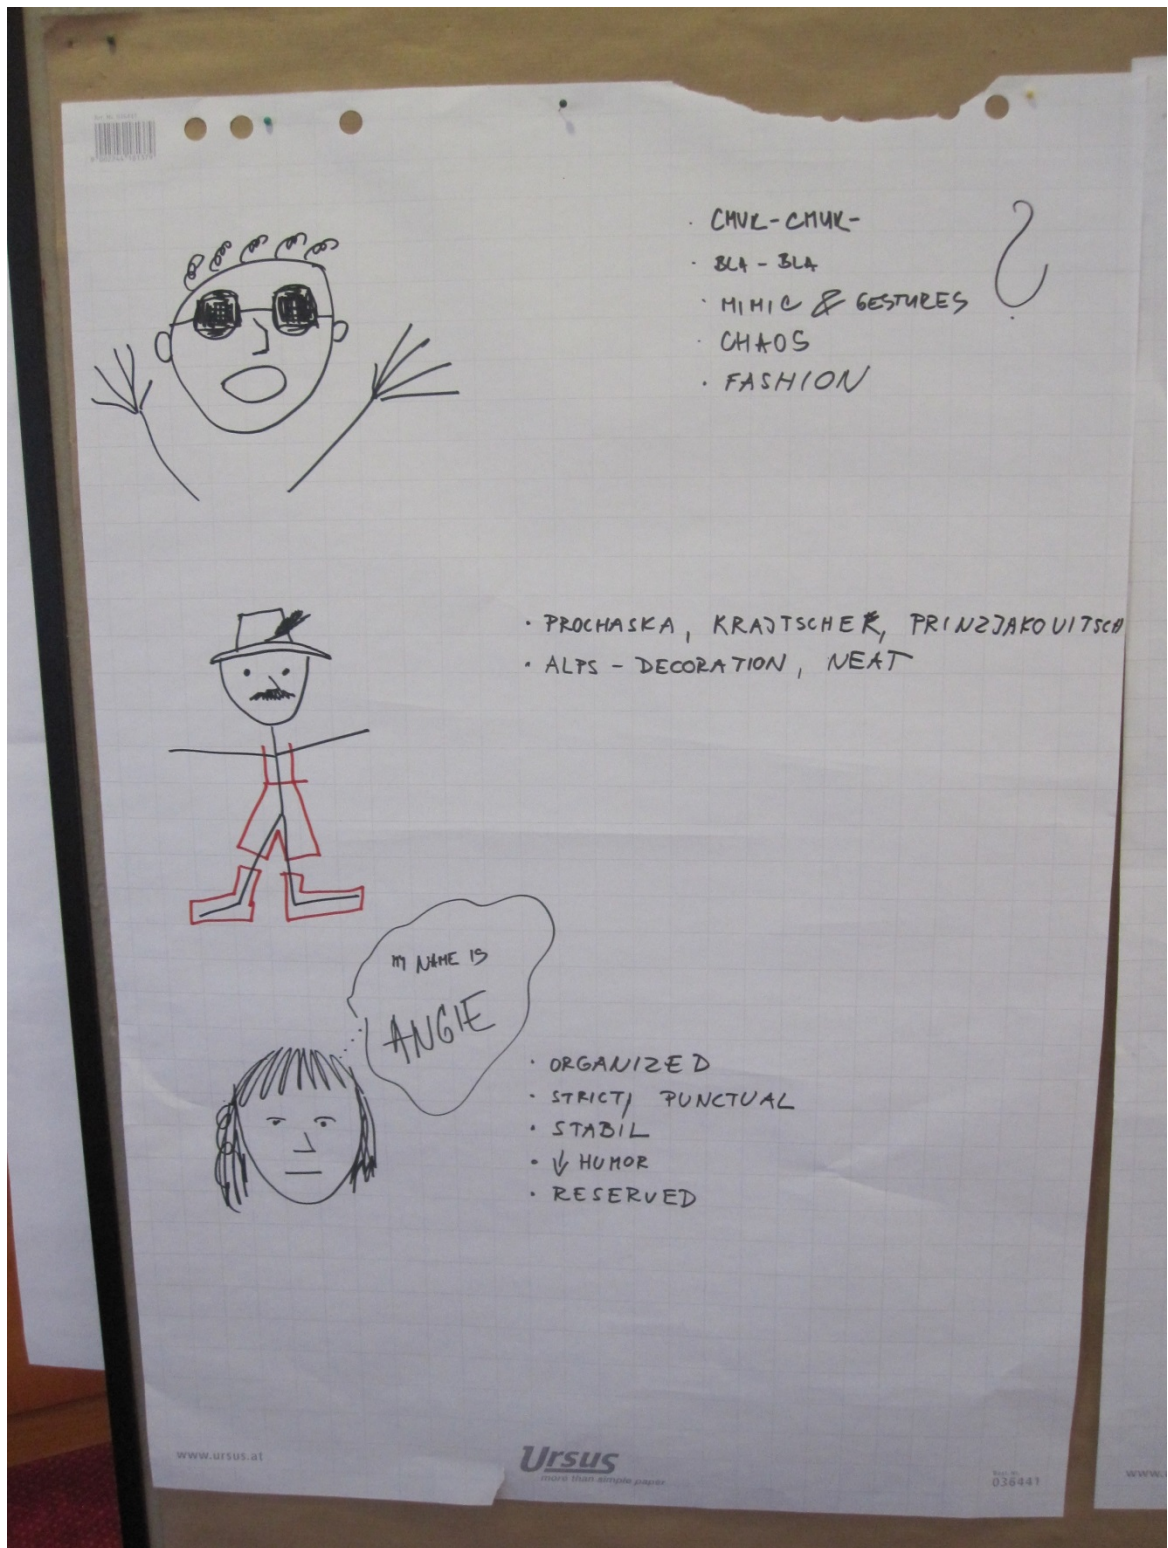 · CMUK-CMUK-
· BLA - BLA
· MIMIC & GESTURES
· CHAOS
· FASHION
?
· PROCHASKA, KRAJTSCHEK, PRINZJAKOVITSCH
· ALPS - DECORATION, NEAT
MY NAME IS
ANGIE
· ORGANIZED
· STRICT, PUNCTUAL
· STABIL
· ↓ HUMOR
· RESERVED
www.ursus.at
Ursus
more than simple paper
036441
www.